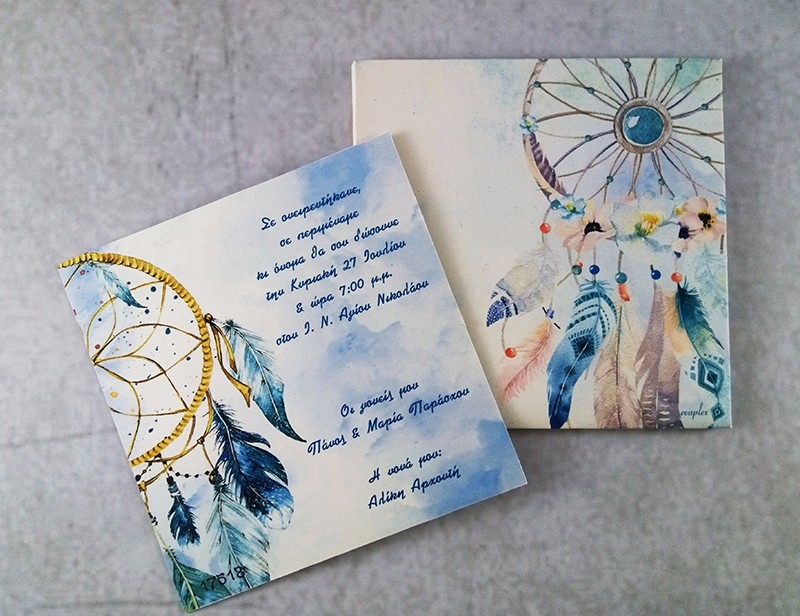 Σε ονειρευτήκαμε,
σε περιμέναμε
κι όνομα θα σου δώσουμε
την Κυριακή 27 Ιουλίου
& ώρα 7:00 μ.μ.
στον Ι. Ν. Αγίου Νικολάου
Οι γονείς μου
Πάνος & Μαρία Παράσχου
Η νονά μου:
Αλίκη Αρχοντή
17518
evaplex